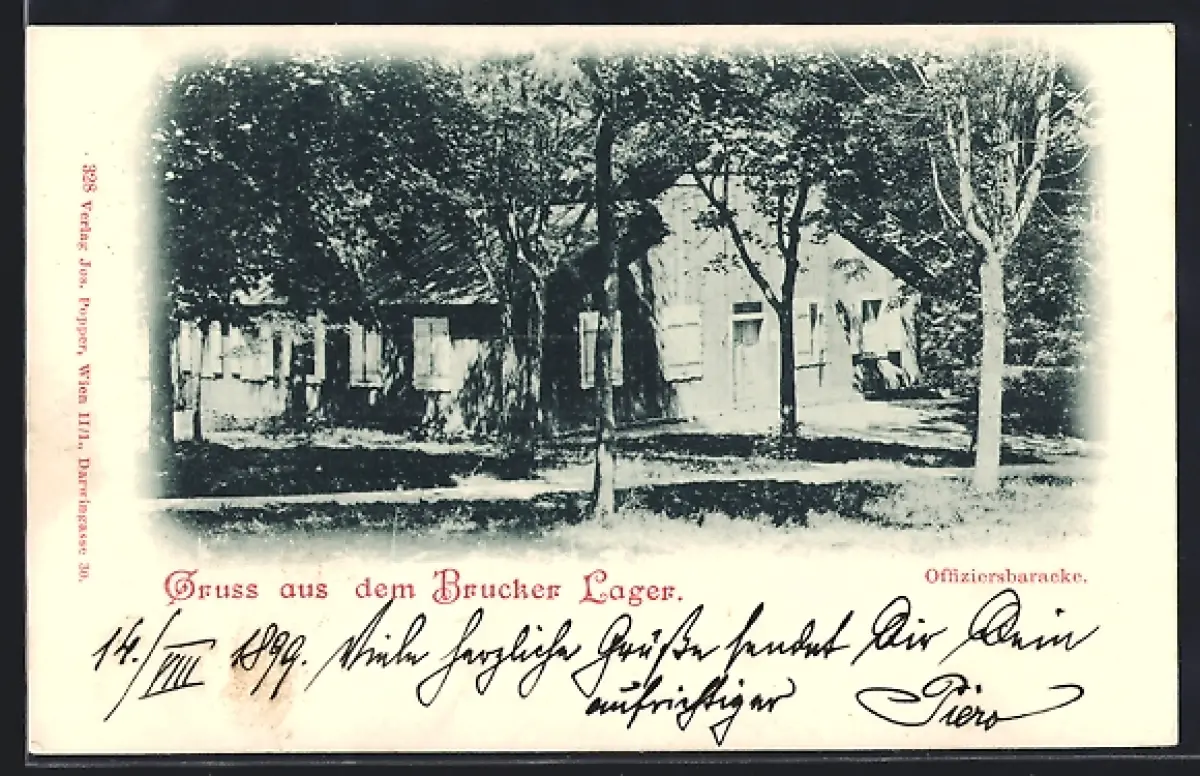 328 Verlag Jos. Popper, Wien II/1., Darwingasse 30.
Gruss aus dem Brucker Lager.
Offiziersbaracke.
14./VIII 1899. Viele herzliche Grüße sendet Dir Dein
aufrichtiger Piero